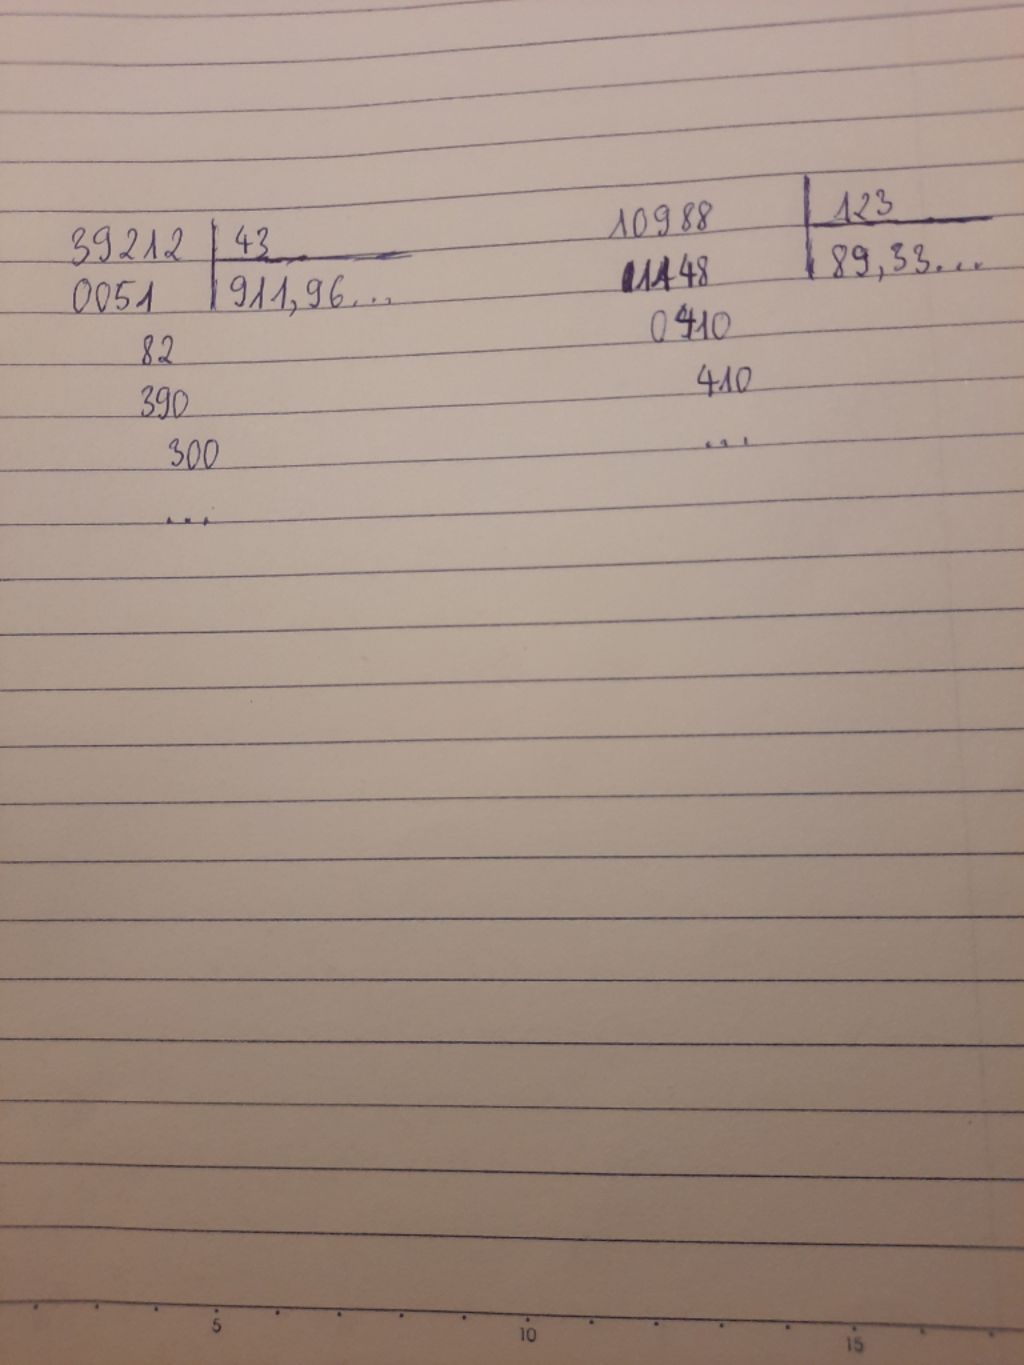 39212 43
0051 911,96...
82
390
300
...
10988 123
1148 89,33...
0410
410
...
5 10 15